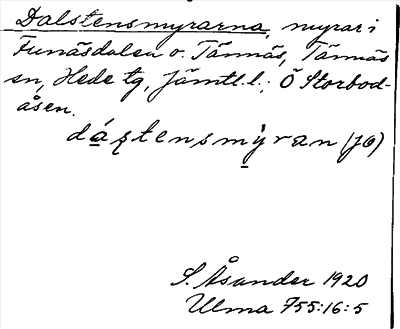 Dalstensmyrarna, myrar i
Funäsdalen o. Tännäs, Tännäs
sn, Hede tg, Jämtl. l.; Ö Storbod-
åsen.
dáştensmỳran (JO)
S. Åsander 1920
Ulma 755:16:5